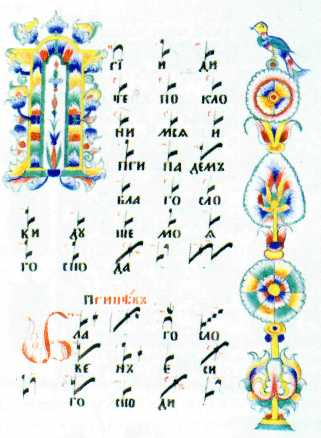 П рі и ди
те по кло
ни мсѧ и
при па демъ
бла го сло
ви ду ше мо ѧ
го спо да
Припѣвъ
Б ла го сло
ве нъ е си
го спо ди